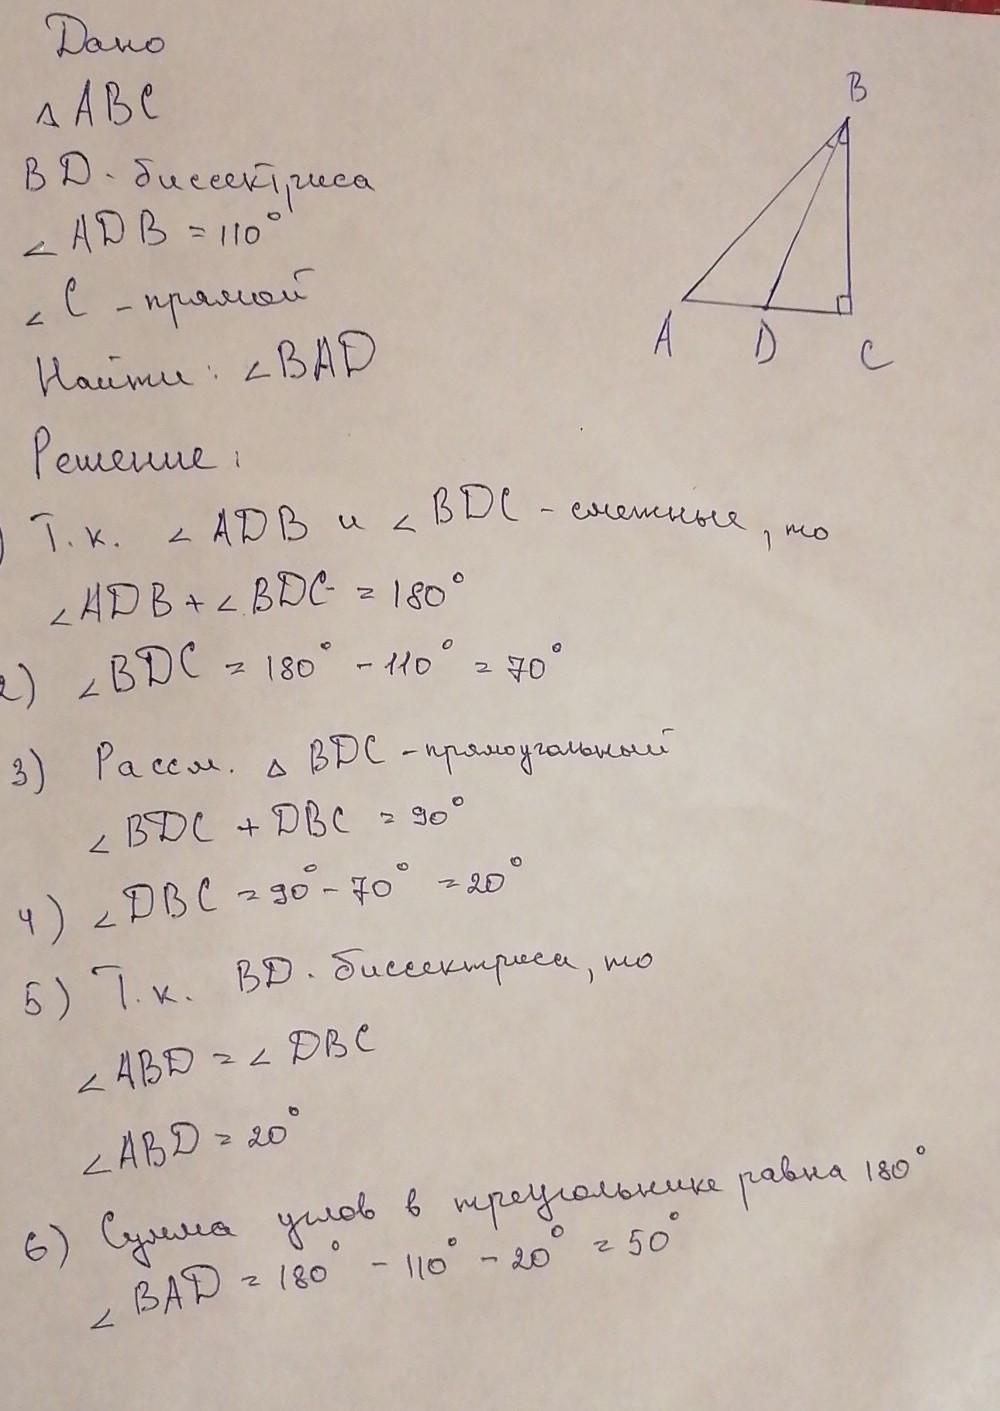 Дано
△ ABC
BD - биссектриса
∠ ADB = 110°
∠ C - прямой
Найти: ∠BAD
B
A D C
Решение:
) Т.к. ∠ ADB и ∠ BDC - смежные, то
∠ADB + ∠BDC = 180°
2) ∠BDC = 180° - 110° = 70°
3) Рассм. △ BDC - прямоугольный
∠BDC + DBC = 90°
4) ∠DBC = 90° - 70° = 20°
5) Т.к. BD - биссектриса, то
∠ABD = ∠ DBC
∠ABD = 20°
6) Сумма углов в треугольнике равна 180°
∠ BAD = 180° - 110° - 20° = 50°